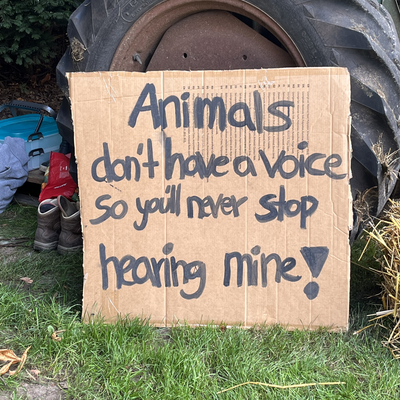 Animals
don't have a voice
so you'll never stop
hearing mine!